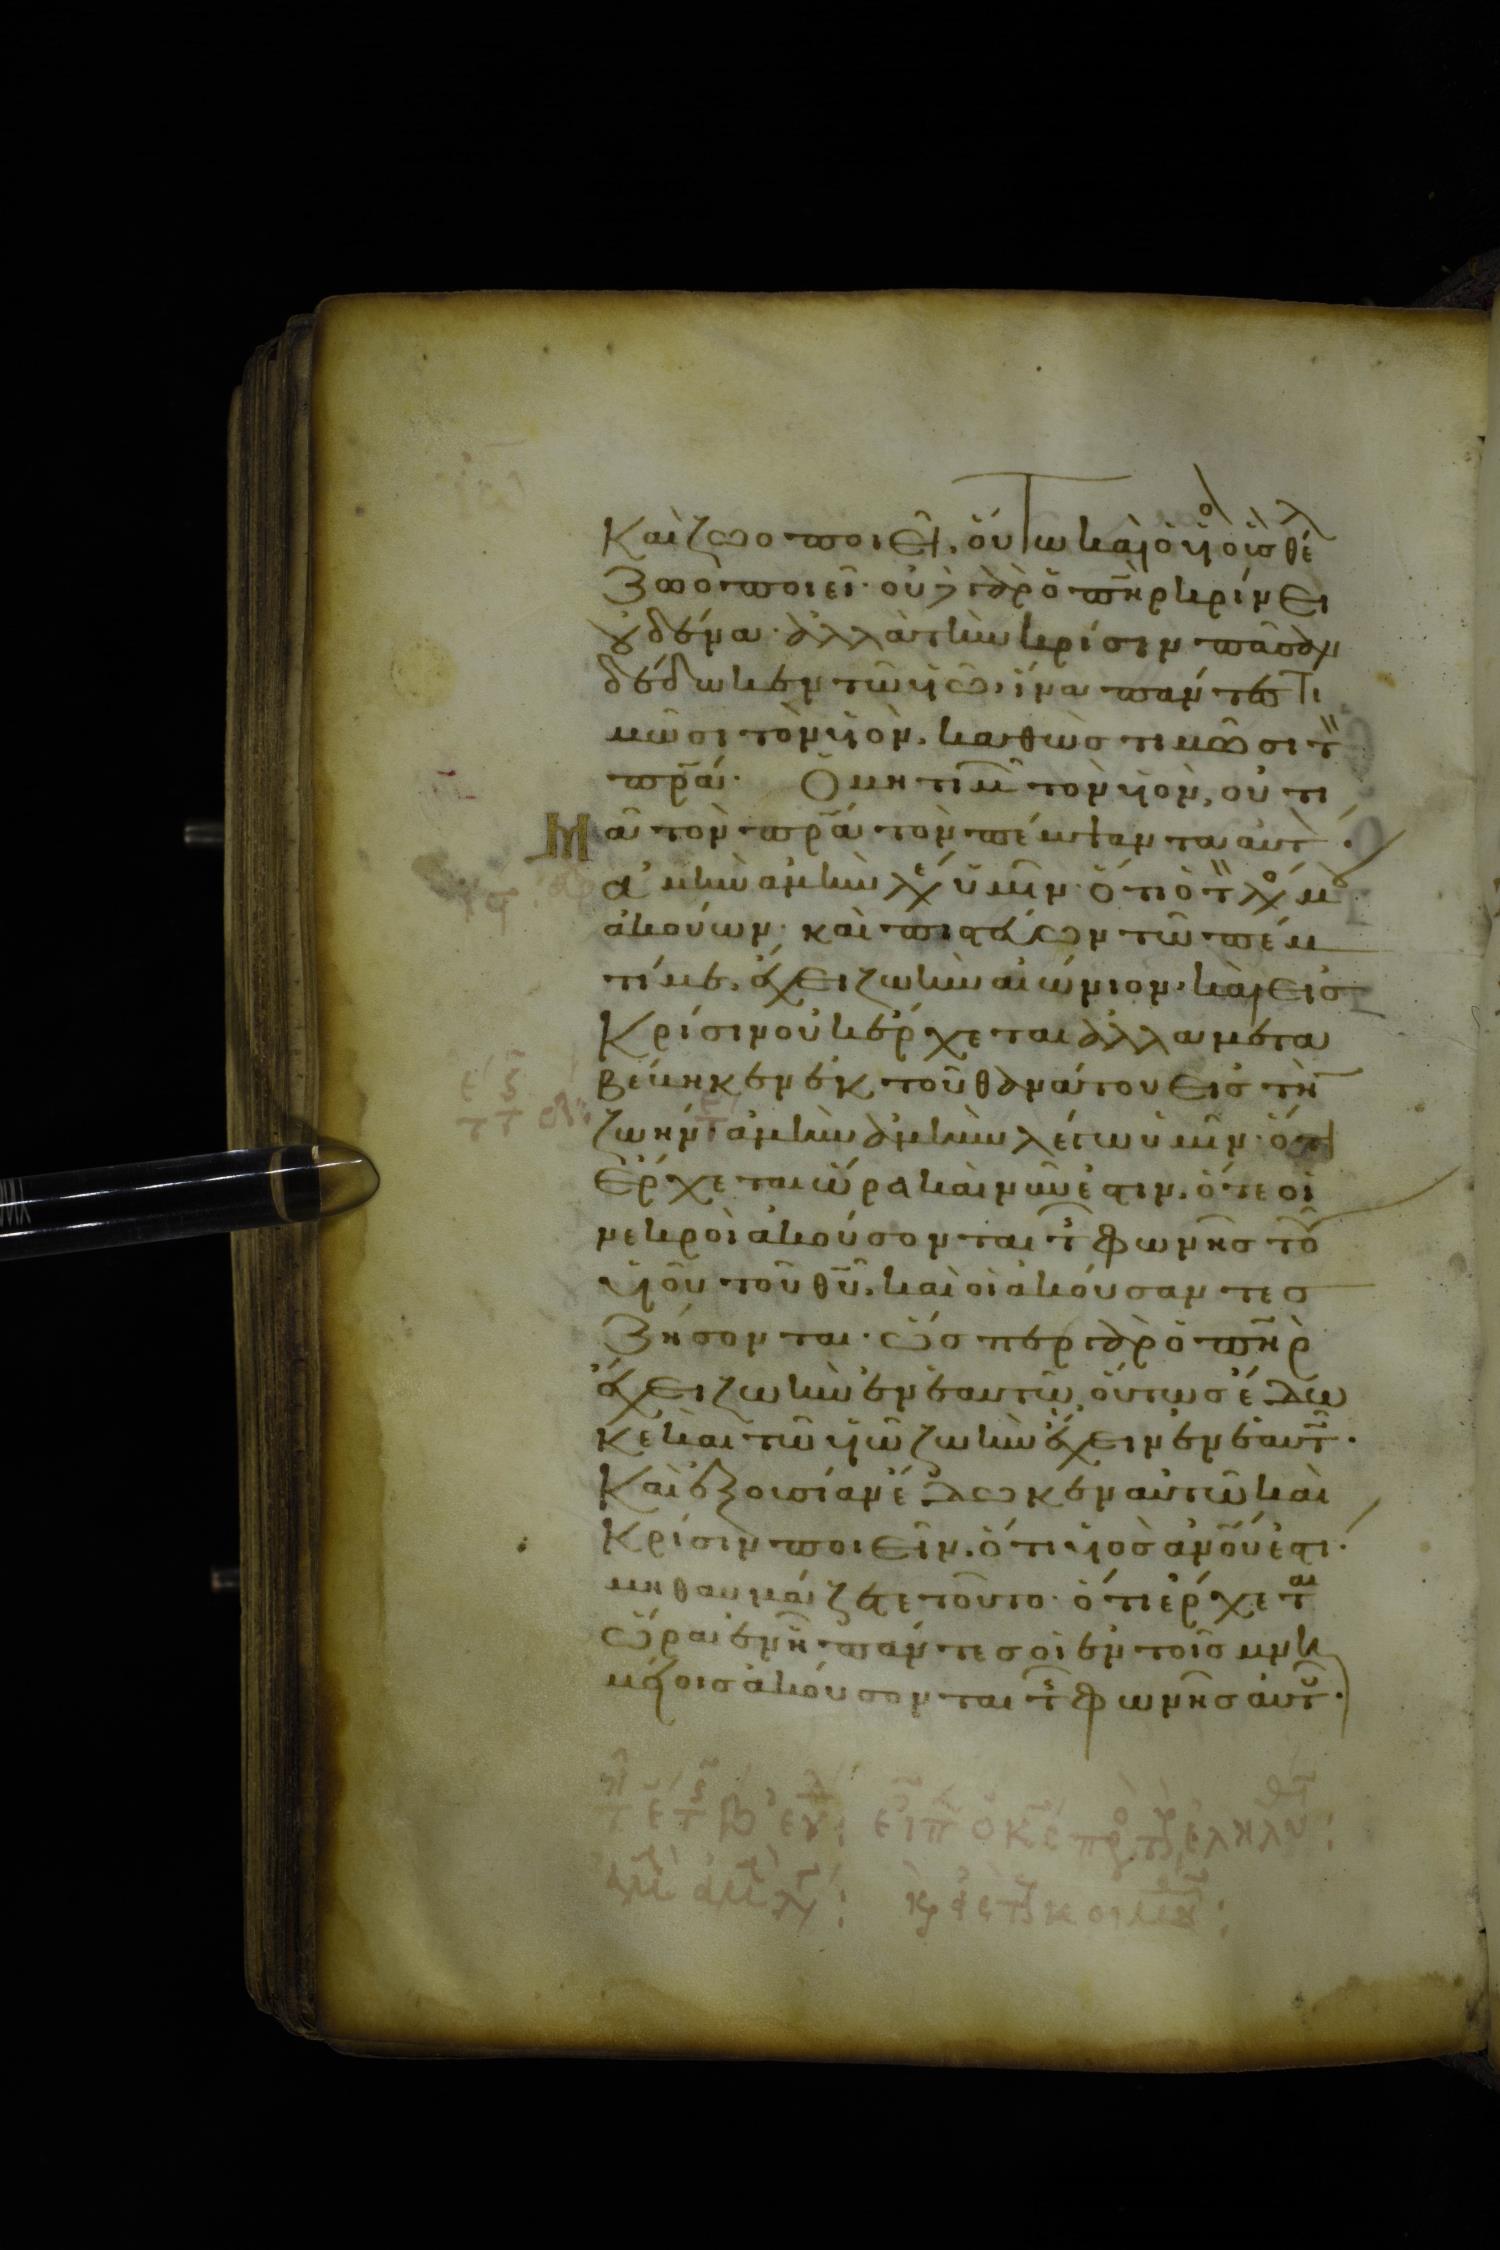 καὶ ζωοποιεῖ, οὕτω καὶ ὁ υἱὸς οὓς θέλ
ζωοποιεῖ· οὐ γὰρ ὁ πηρ κρίνει
οὐδένα· ἀλλὰ τὴν κρίσιν πᾶσαν
δέδωκεν τῶ υἱῶ, ἵνα πάντες τι
μῶσι τὸν υἱὸν, καθὼς τιμῶσι τ
πρα· Ὁ μὴ τιμ τὸν υἱὸν, οὐ τι
μᾶ τὸν πρα τὸν πέμψαντα αυτ·
ἀμὴν ἀμὴν λέγ ὑμῖν· ὅτι ὁ τ λόγ μου
ἀκούων· καὶ πιστεύων τῶ πέμ
ψαντί με, ἔχει ζωὴν αἰώνιον· καὶ εἰς
κρίσιν οὐκ ἔρχεται ἀλλα μετα
βέβηκεν ἐκ τοῦ θανάτου εἰς τὴ
ζωήν· ἀμὴν ἀμὴν λέγω ὑμῖν· ὅτι
ἔρχεται ὥρα καὶ νῦν ἐστιν, ὅτε οἱ
νεκροὶ ἀκούσονται τ φωνῆς τοῦ
υἱοῦ τοῦ θυ, καὶ οἱ ἀκούσαντες
ζήσονται· ὥσπερ γὰρ ὁ πηρ
ἔχει ζωὴν ἐν ἑαυτῶ, οὕτως ἔδω
κε καὶ τῶ υἱῶ ζωὴν ἔχειν ἐν ἑαυτ·
καὶ ἐξουσίαν ἔδωκεν αὐτῶ καὶ
κρίσιν ποιεῖν, ὅτι υἱὸς ανου ἐστι·
μὴ θαυμάζετε τοῦτο· ὅτι ἔρχεται
ὥρα ἐν ἧ πάντες οἱ ἐν τοῖς μνη
μείοις ἀκούσονται τ φωνῆς αὐτ·